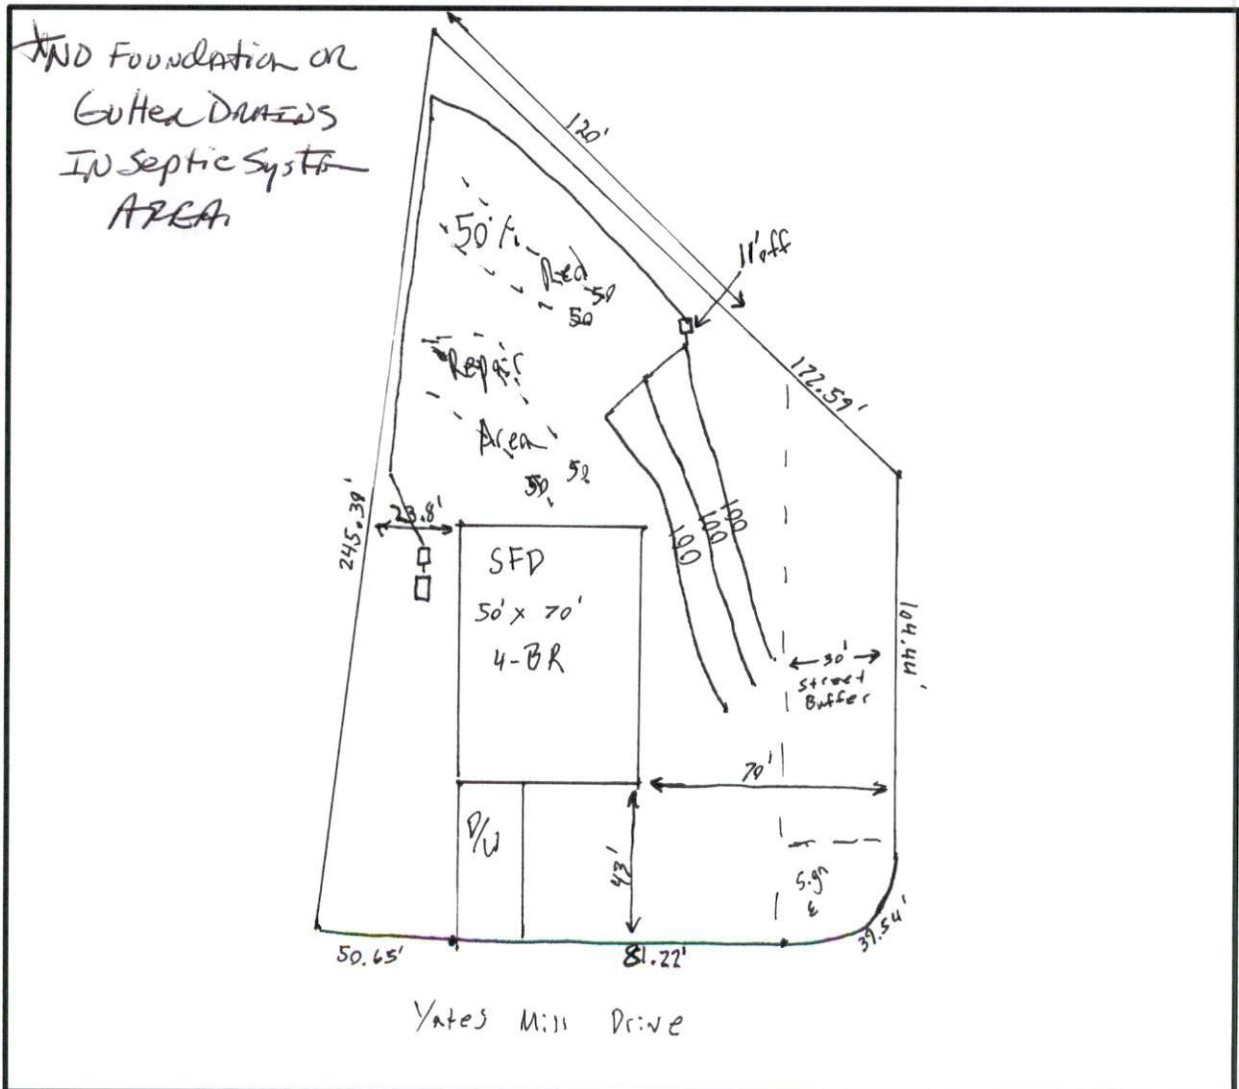 *NO Foundation or
Gutter DRAINS
IN Septic System
AREA.
120'
11' off
50' A.
Red
50
50
Repair
Area
50 50
172.59'
245.39'
23.8'
SFD
50' x 70'
4-BR
100
100
100
104.44'
30'
Street
Buffer
70'
D/W
43'
Sign
E
39.54'
50.65'
81.22'
Yates Mill Drive